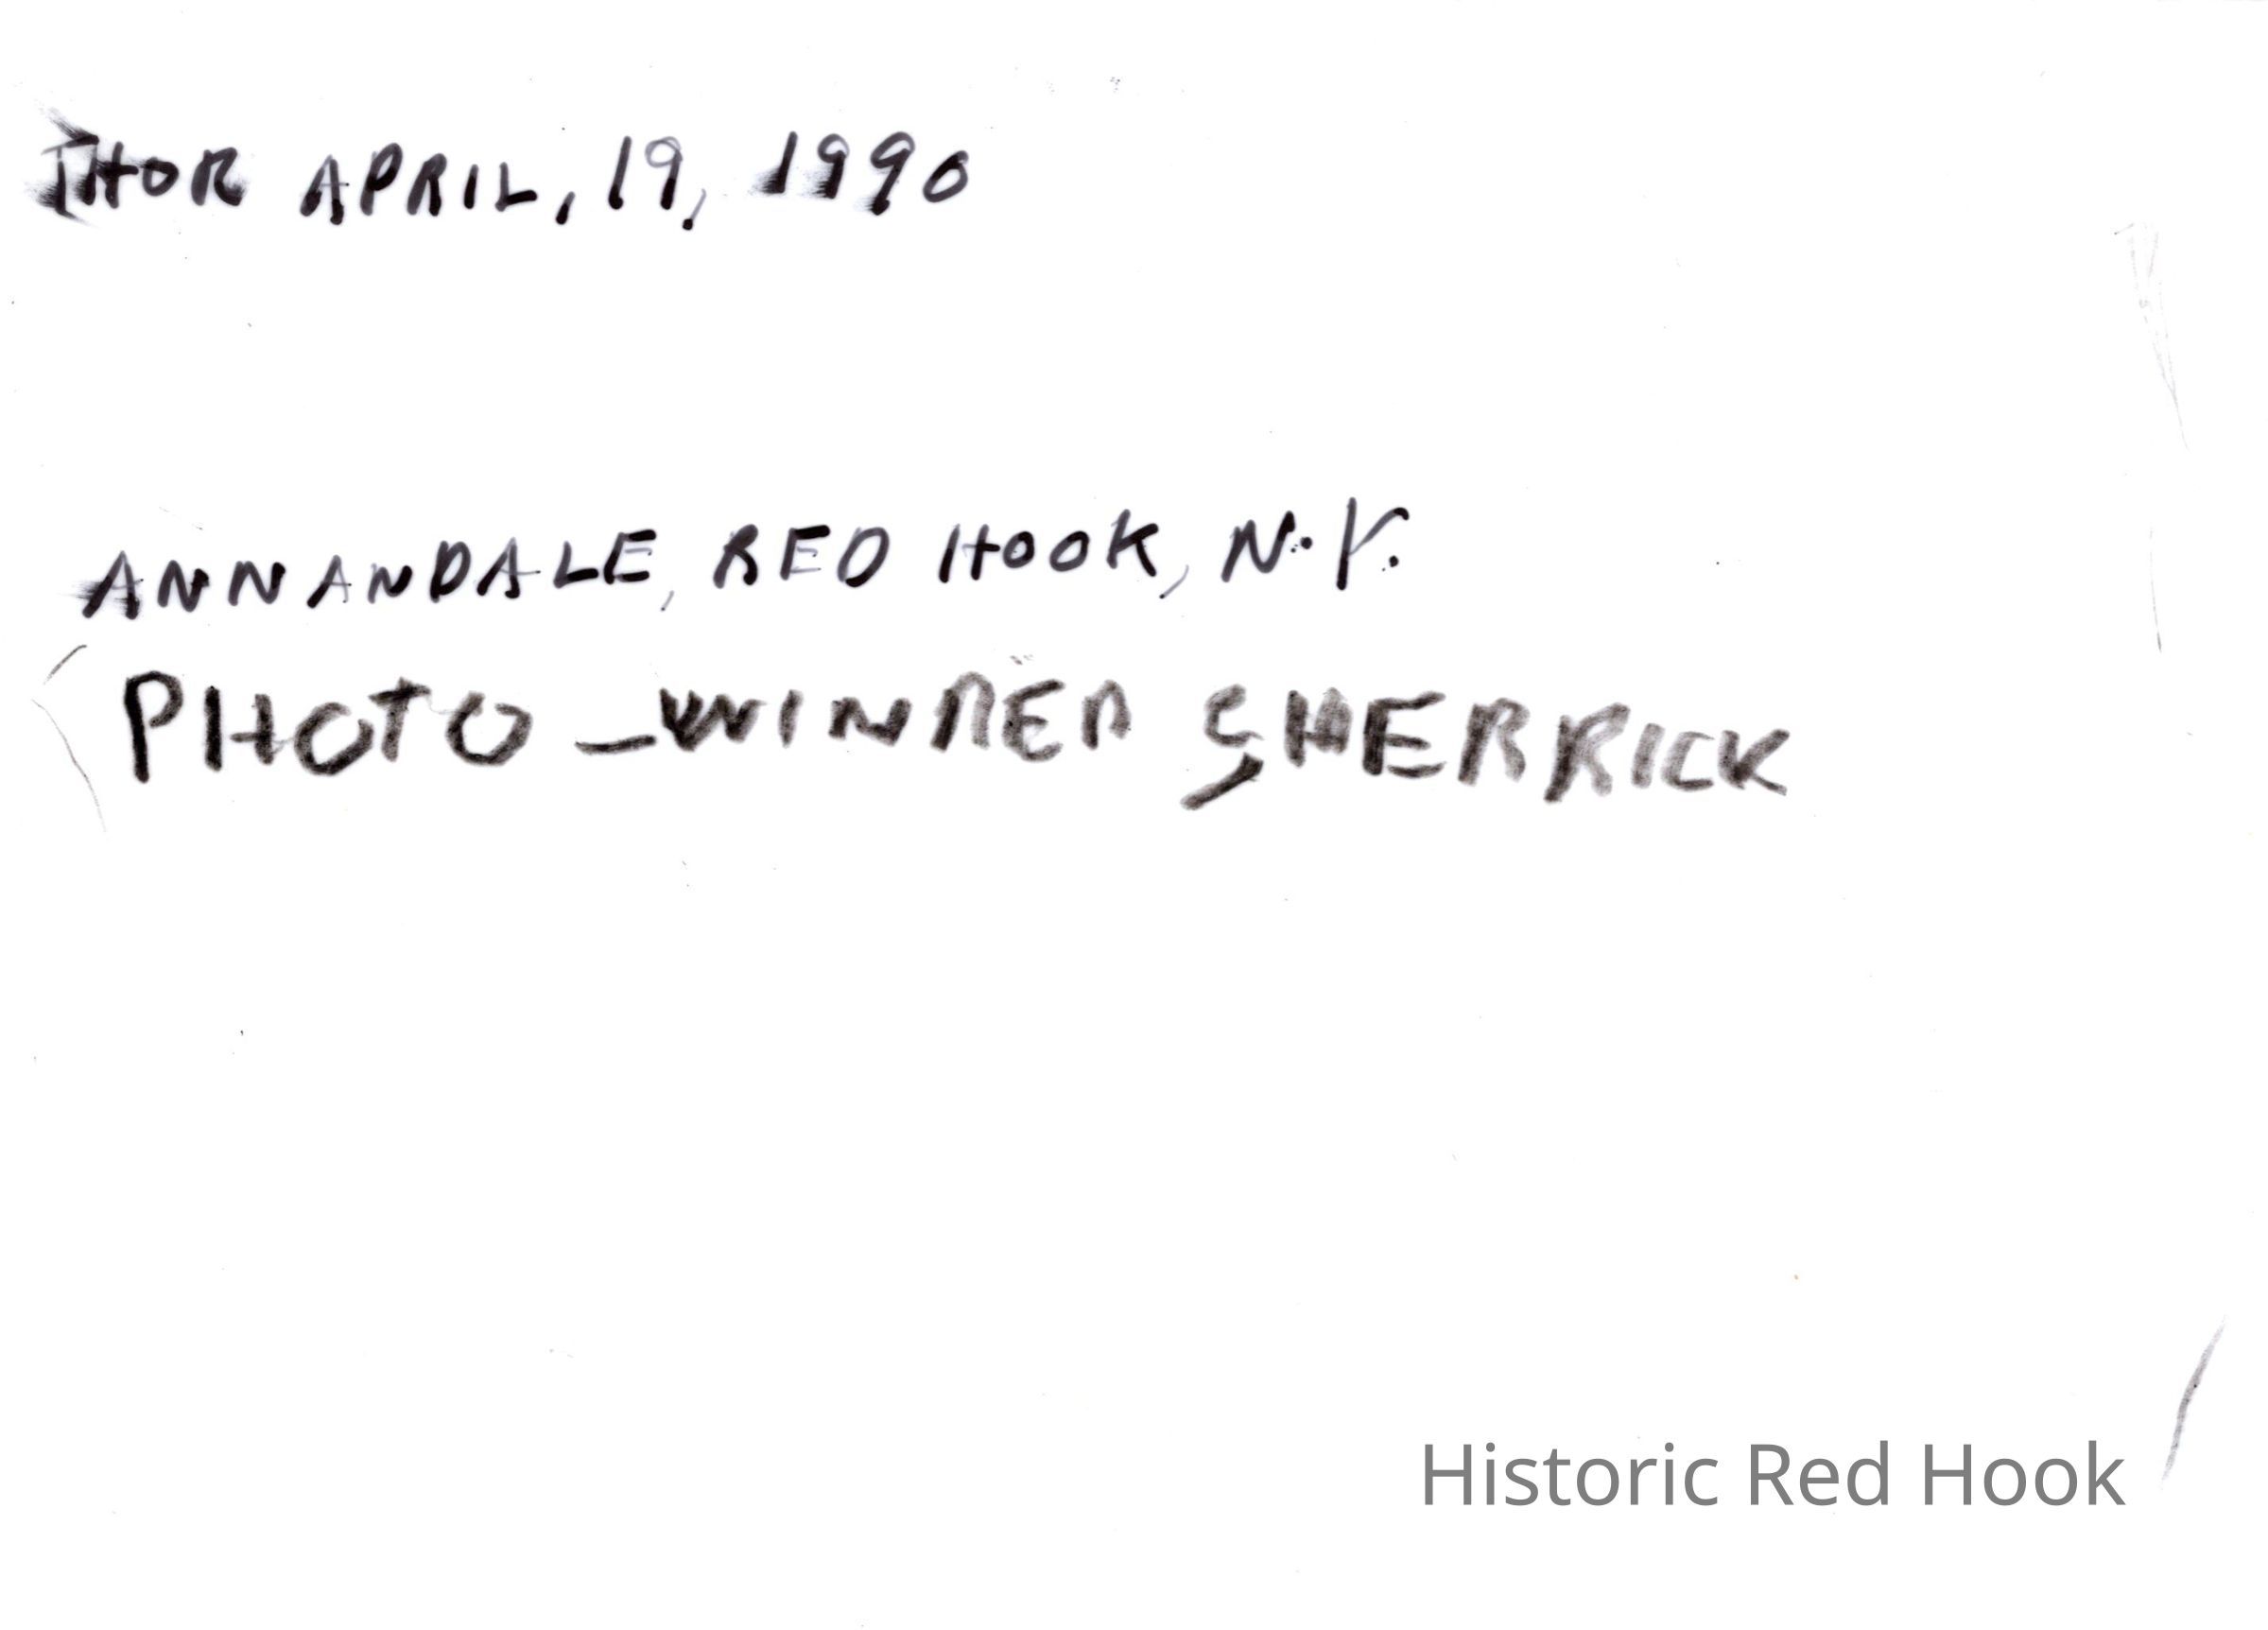 THOR APRIL, 19, 1990
ANNANDALE, RED HOOK, N.Y.
PHOTO - WINRED SHERRICK
Historic Red Hook